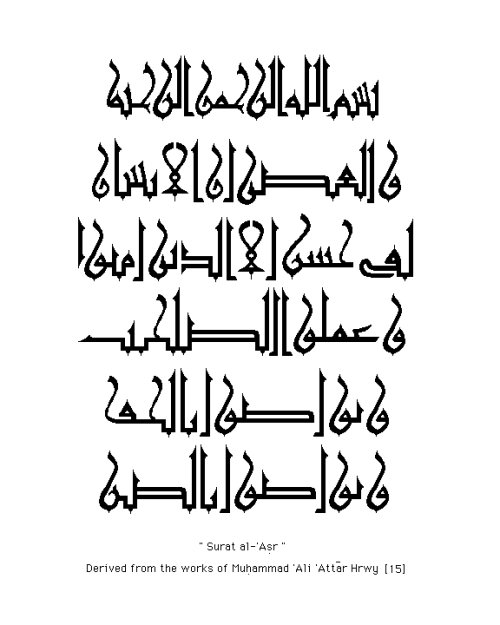 بسم الله الرحمن الرحيم
والعصر ان الانسان
لفى خسر الا الذين امنوا
وعملوا الصلحت
وتواصوا بالحق
وتواصوا بالصبر
" Surat al-'Aṣr "
Derived from the works of Muḥammad 'Ali 'Attār Hrwy [15]